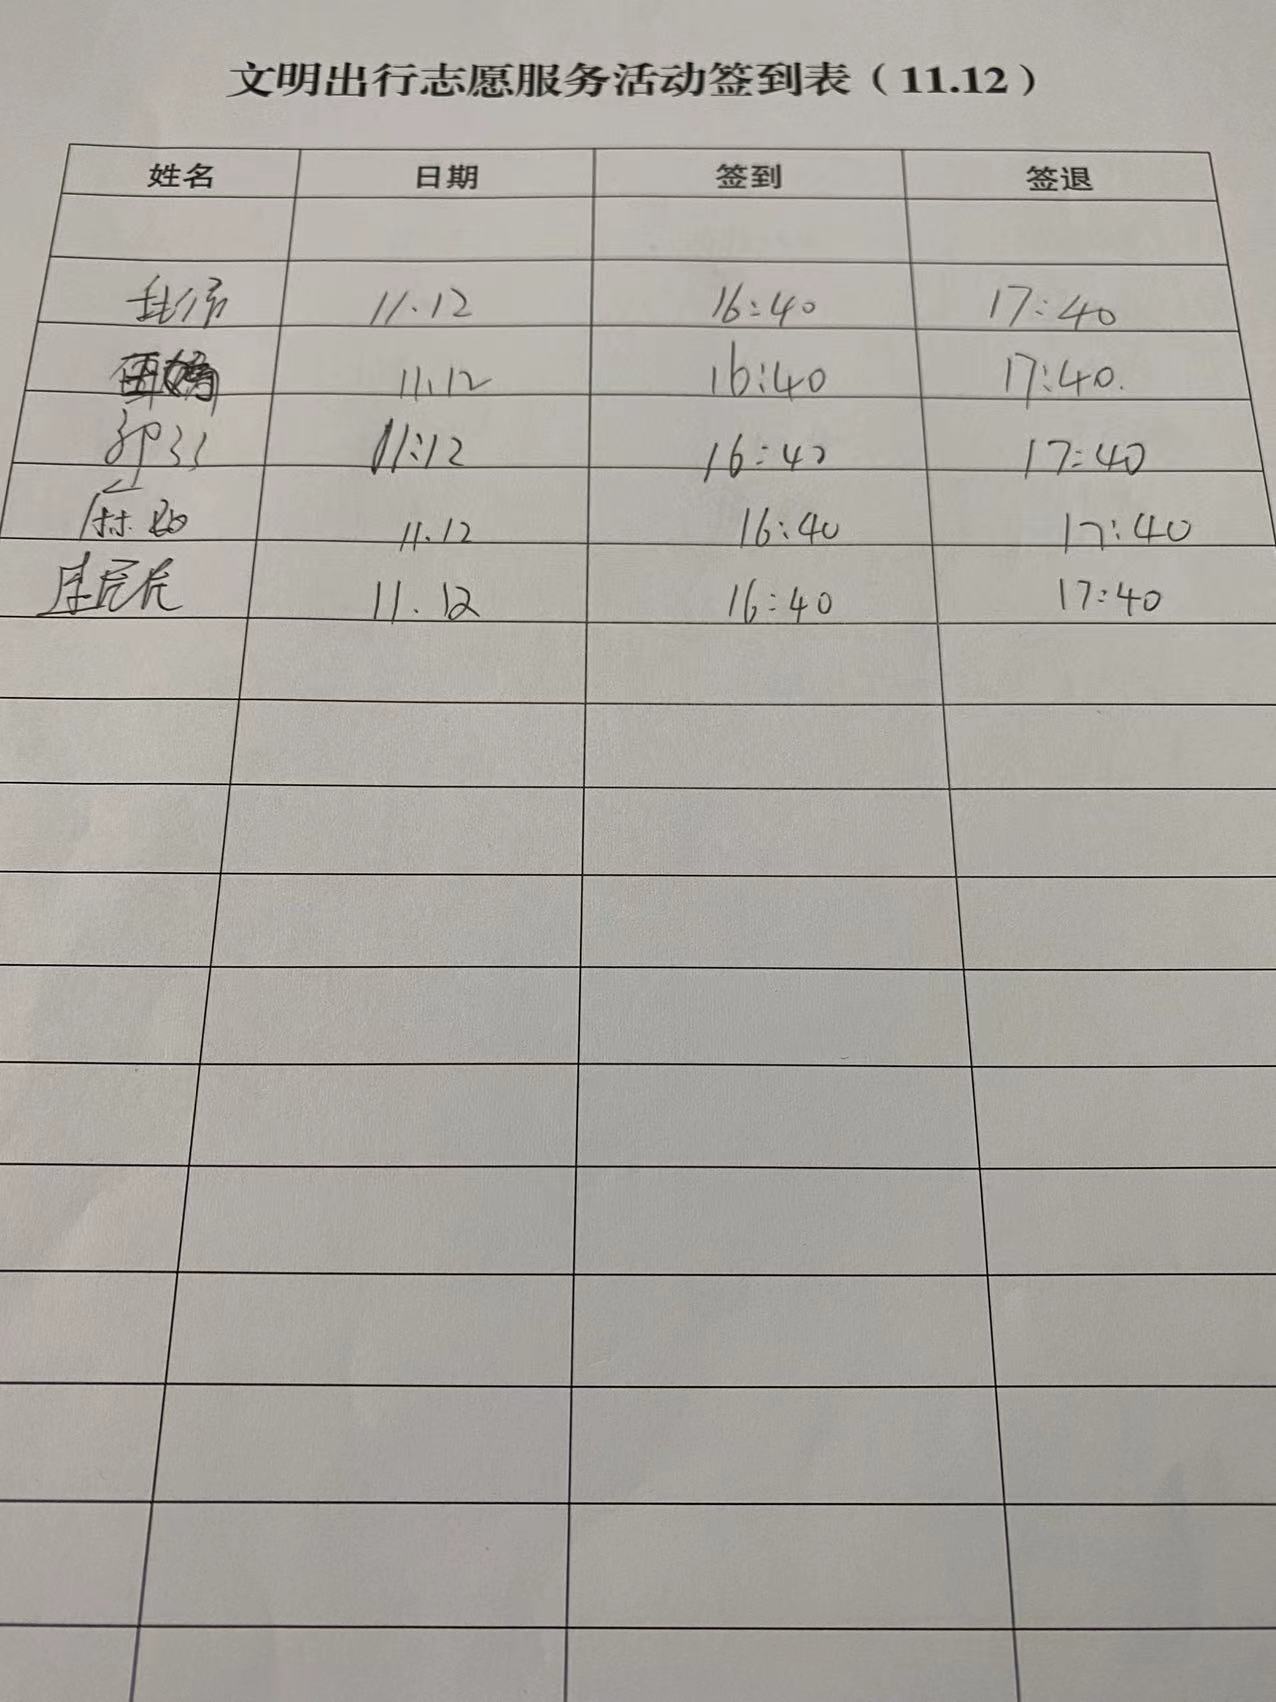 文明出行志愿服务活动签到表（11.12）
姓名 日期 签到 签退
11.12 16:40 17:40
11.12 16:40 17:40.
11:12 16:40 17:40
11.12 16:40 17:40
11.12 16:40 17:40